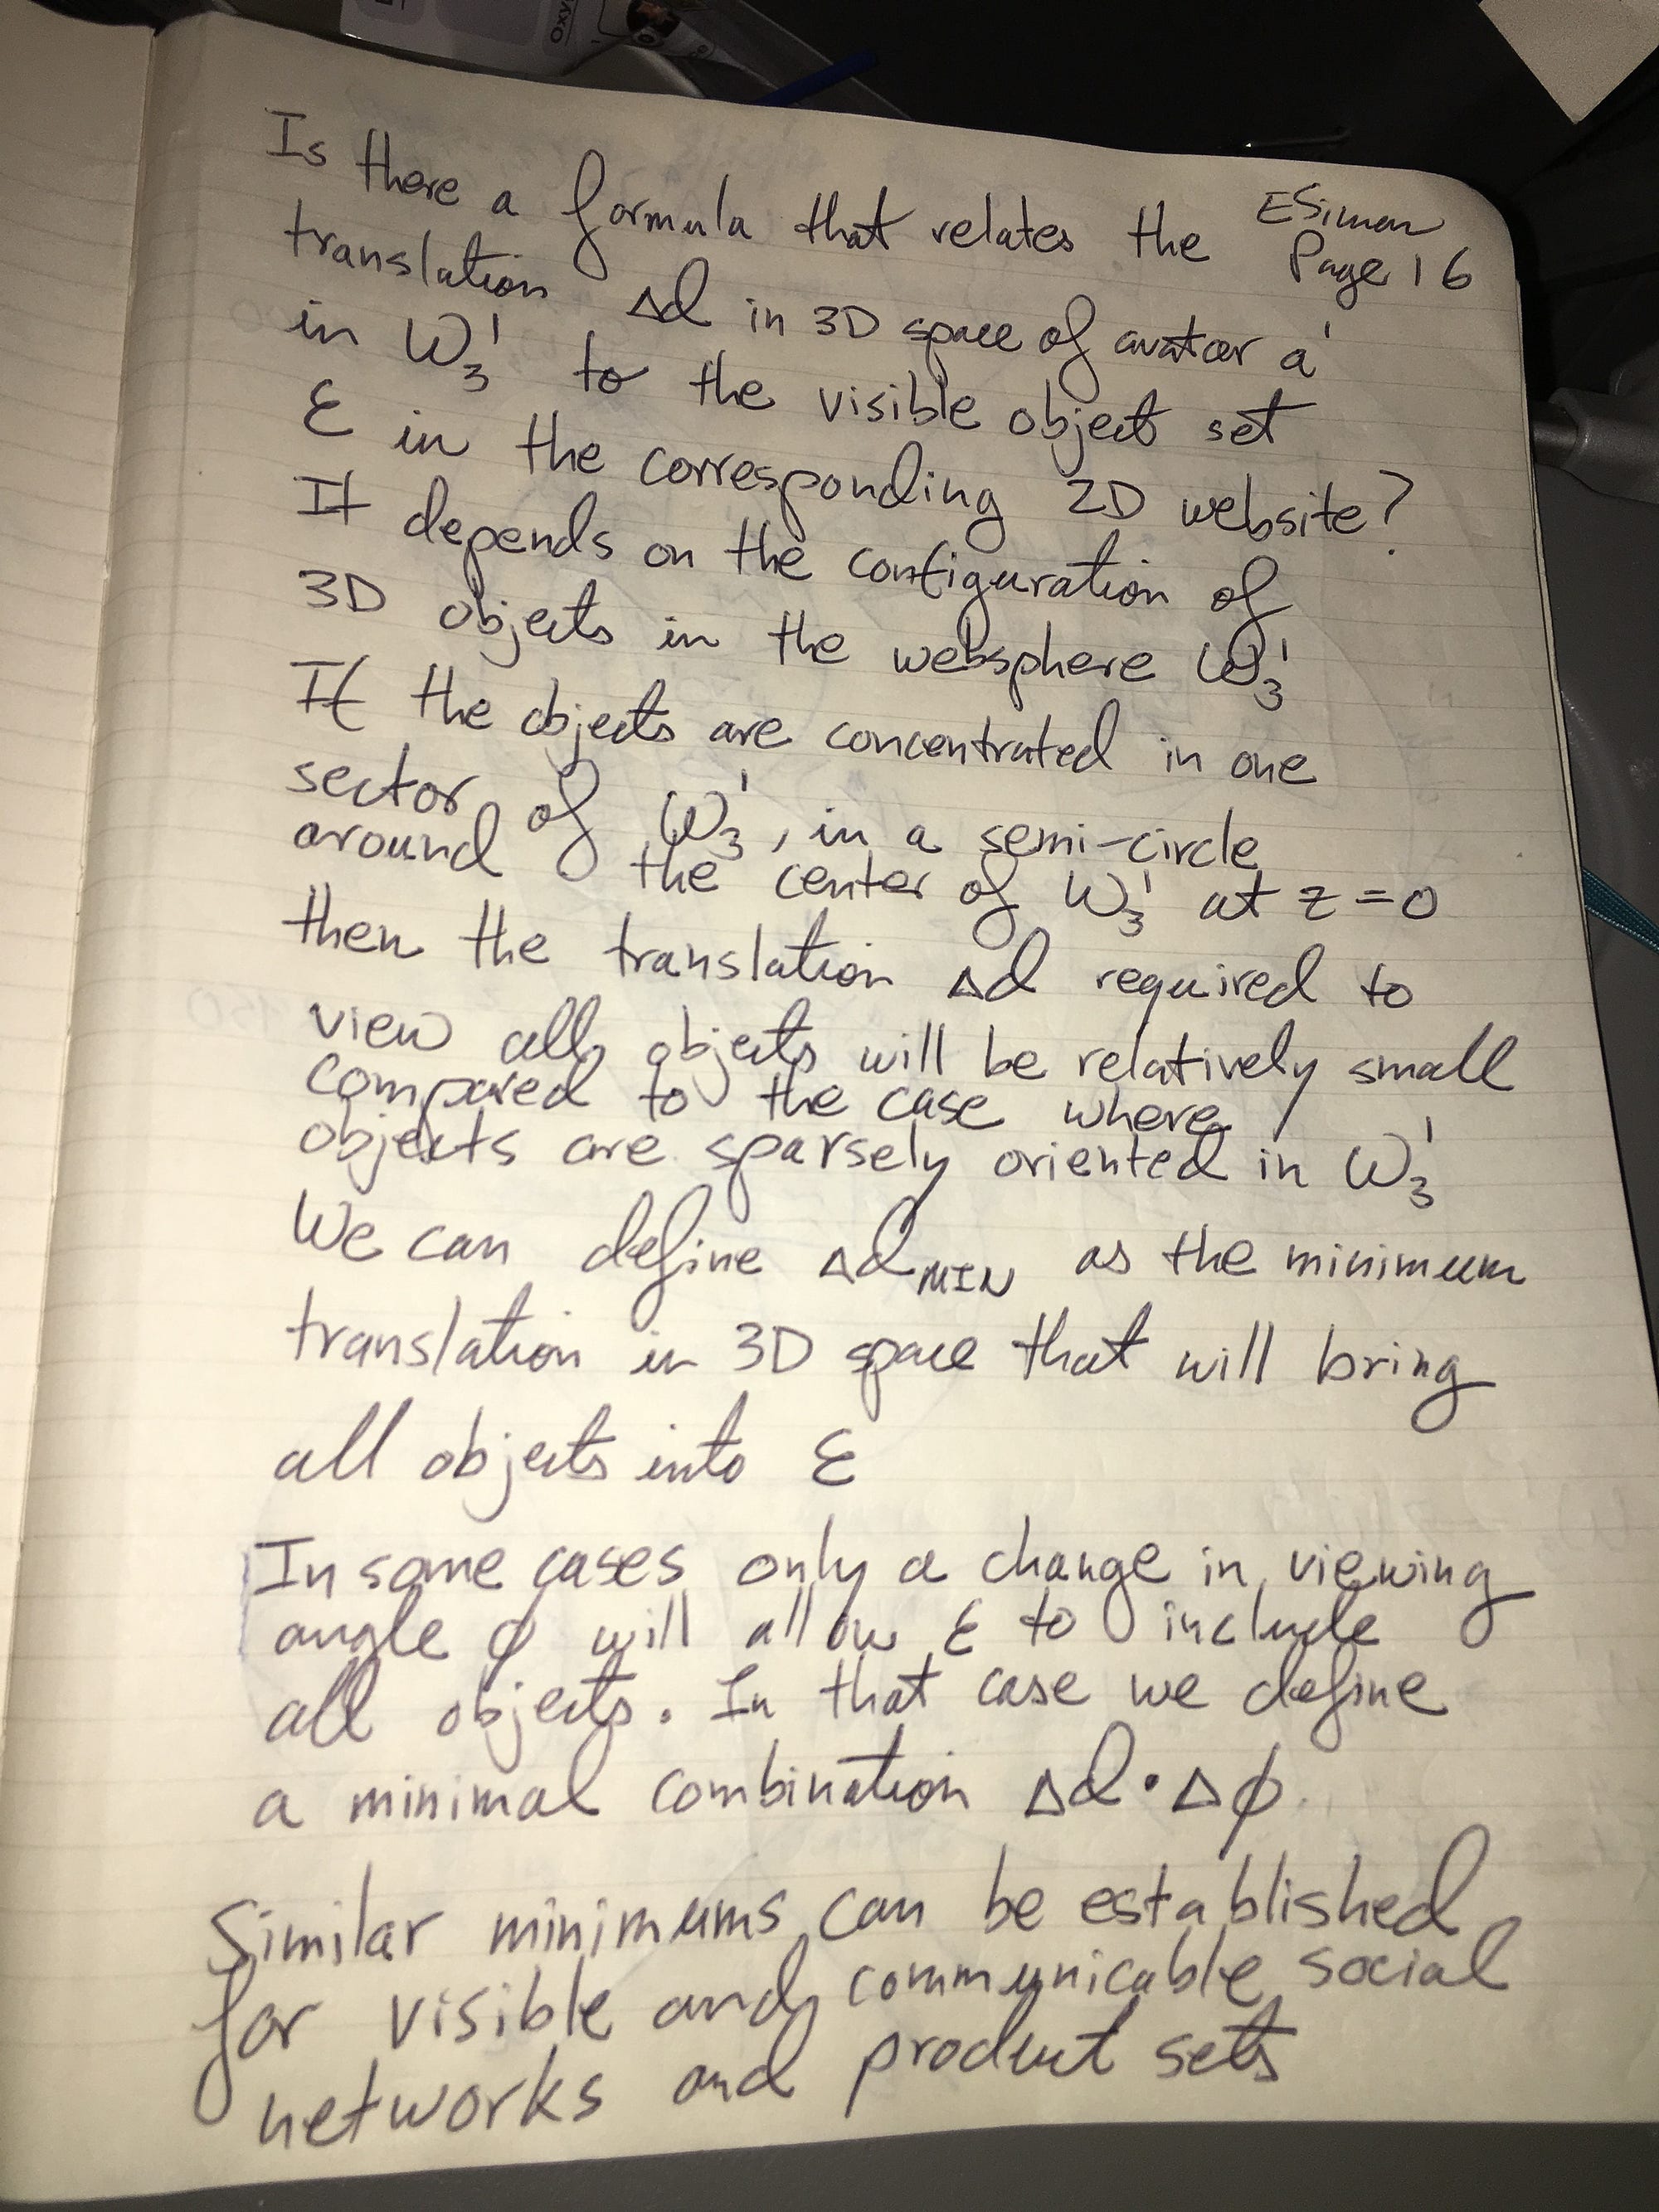 Oxy
ESimon
Page 16
Is there a formula that relates the
translation Δd in 3D space of avatar a'
in W₃' to the visible object set
ε in the corresponding 2D website?
It depends on the configuration of
3D objects in the websphere W₃'
If the objects are concentrated in one
sector of W₃', in a semi-circle
around the center of W₃' at z=0
then the translation Δd required to
view all objects will be relatively small
compared to the case where
objects are sparsely oriented in W₃'
We can define Δd MIN as the minimum
translation in 3D space that will bring
all objects into ε
In some cases only a change in viewing
angle φ will allow ε to include
all objects. In that case we define
a minimal combination Δd·Δφ
Similar minimums can be established
for visible and communicable social
networks and product sets